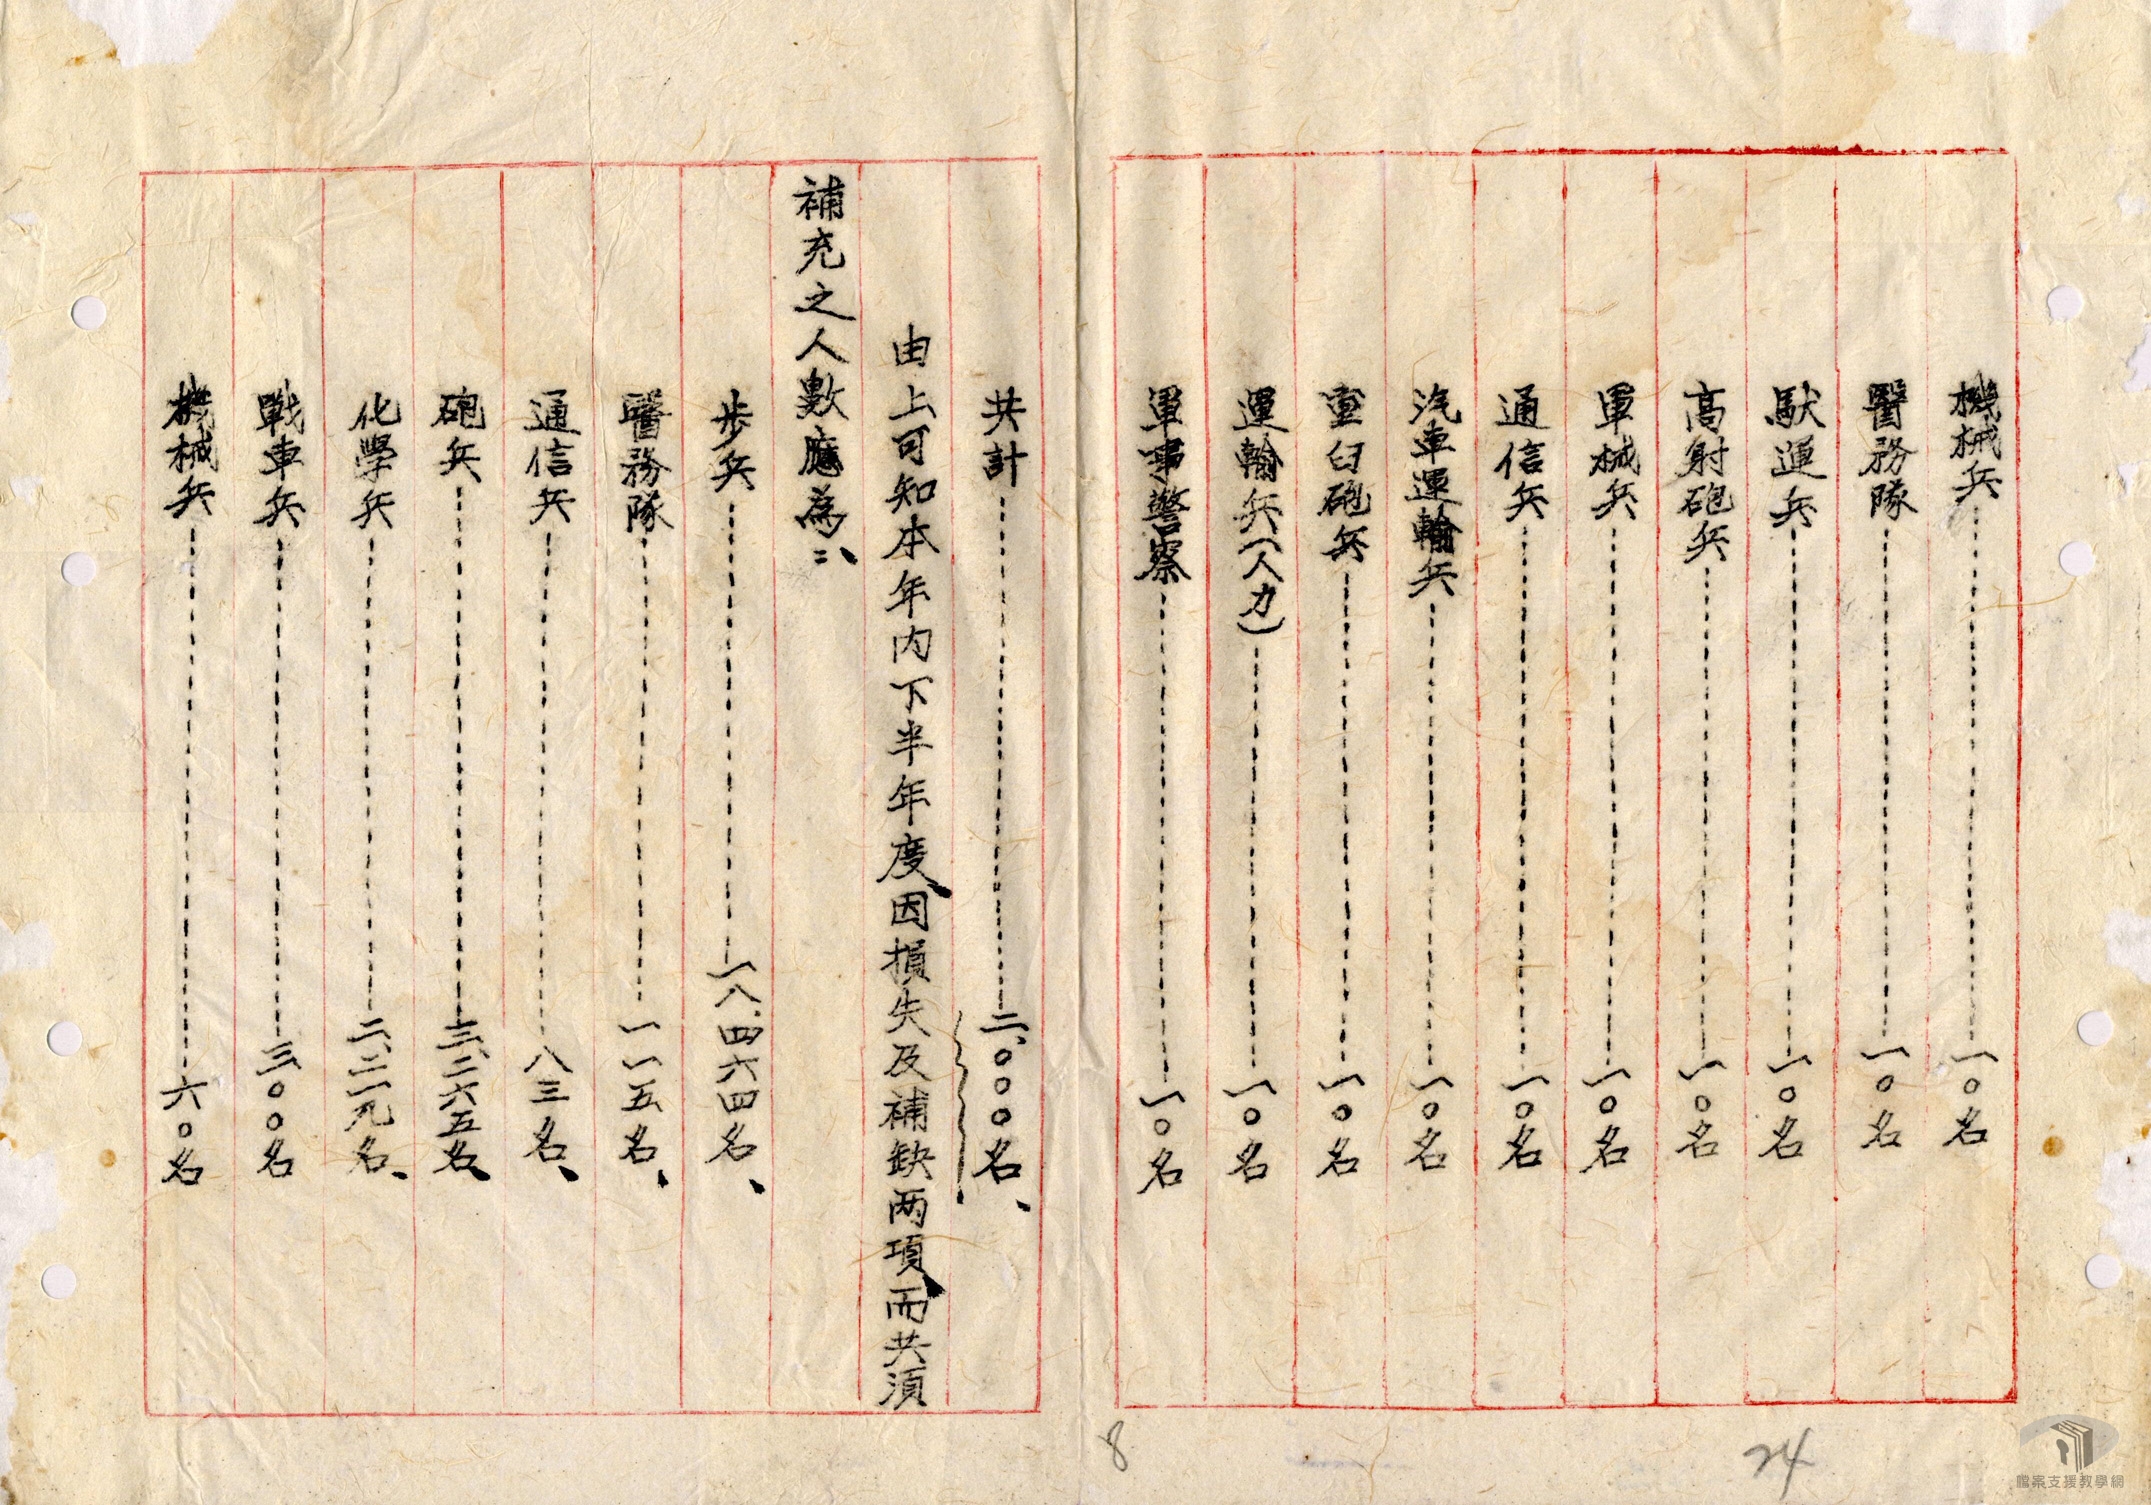 機械兵 一〇名
醫務隊 一〇名
馱運兵 一〇名
高射砲兵 一〇名
軍械兵 一〇名
通信兵 一〇名
汽車運輸兵 一〇名
重臼砲兵 一〇名
運輸兵(人力) 一〇名
軍事警察 一〇名
共計 二、〇〇〇名、
由上可知本年内下半年度、因損失及補缺两項、而共須
補充之人數應為：
步兵 一八、四六四名、
醫務隊 一一五名、
通信兵 八三名、
砲兵 三、二六五名、
化學兵 二、二一九名、
戰車兵 三〇〇名
機械兵 六〇名
8
24
檔案支援教學網